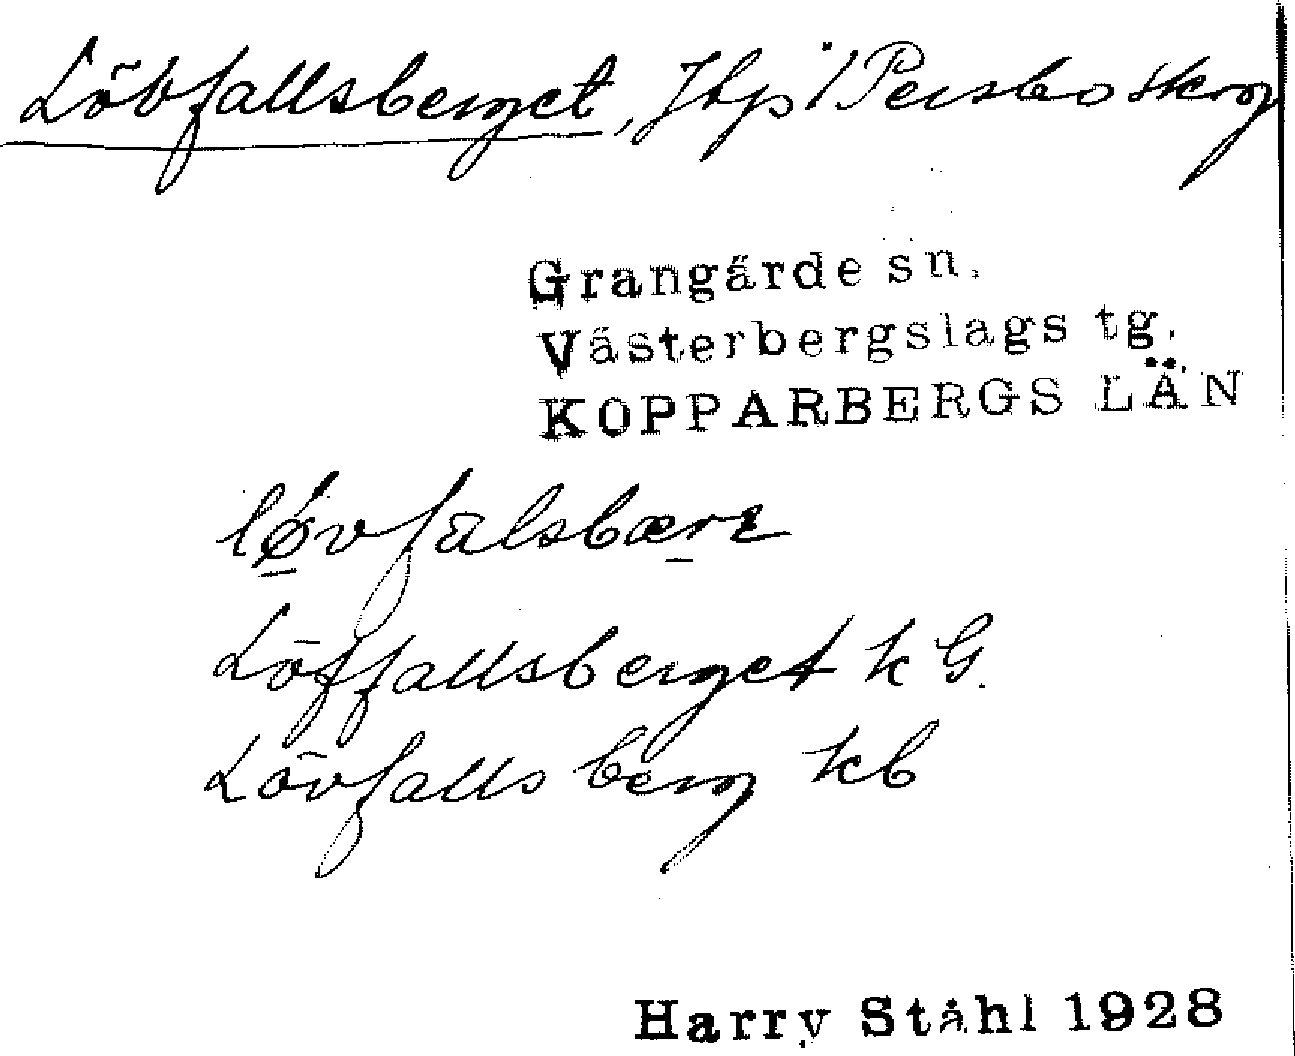 Lövfallsberget, Jhp i Persbo skog
Grangärde sn.
Västerbergslags tg.
KOPPARBERGS LÄN
lǿvfalsbære
Löffallsberget k G.
Lövfalls berg kb
Harry Ståhl 1928